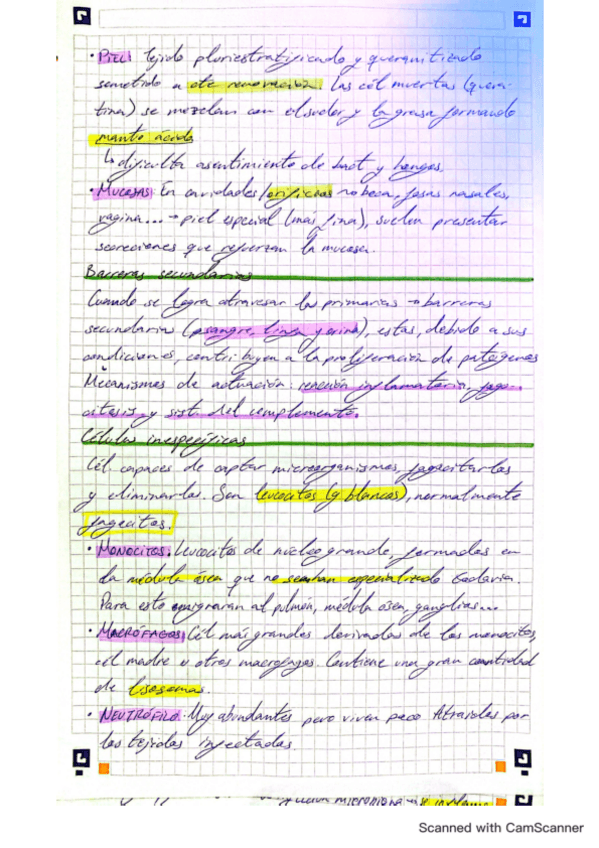 • PIEL: Tejido pluriestratificado y queratinizado
sometido a cte renovación. Las cél muertas (quera-
tina) se mezclan con el sudor y la grasa formando
manto ácido
↳ dificulta asentimiento de bact y hongos.
• MUCOSAS: En cavidades/orificios → boca, fosas nasales,
vagina... → piel especial (más fina), suelen presentar
secreciones que refuerzan la mucosa.
Barreras secundarias
Cuando se logra atravesar las primarias → barreras
secundarias (sangre, linfa y orina), estas, debido a sus
condiciones, contribuyen a la proliferación de patógenos
Mecanismos de actuación: reacción inflamatoria, fago-
citosis y sist. del complemento.
Células inespecíficas
Cél. capaces de captar microorganismos, fagocitarlos
y eliminarlos. Son leucocitos (g blancos), normalmente
fagocitos.
• MONOCITOS: Leucocitos de núcleo grande, formados en
la médula ósea que no se han especializado todavía.
Para esto emigraran al pulmón, médula ósea, ganglios...
• MACRÓFAGOS: Cél más grandes derivadas de los monocitos,
cél madre u otros macrófagos. Contiene una gran cantidad
de lisosomas.
• NEUTRÓFILO: Muy abundantes pero viven poco. Atraidos por
los tejidos infectados.
Scanned with CamScanner